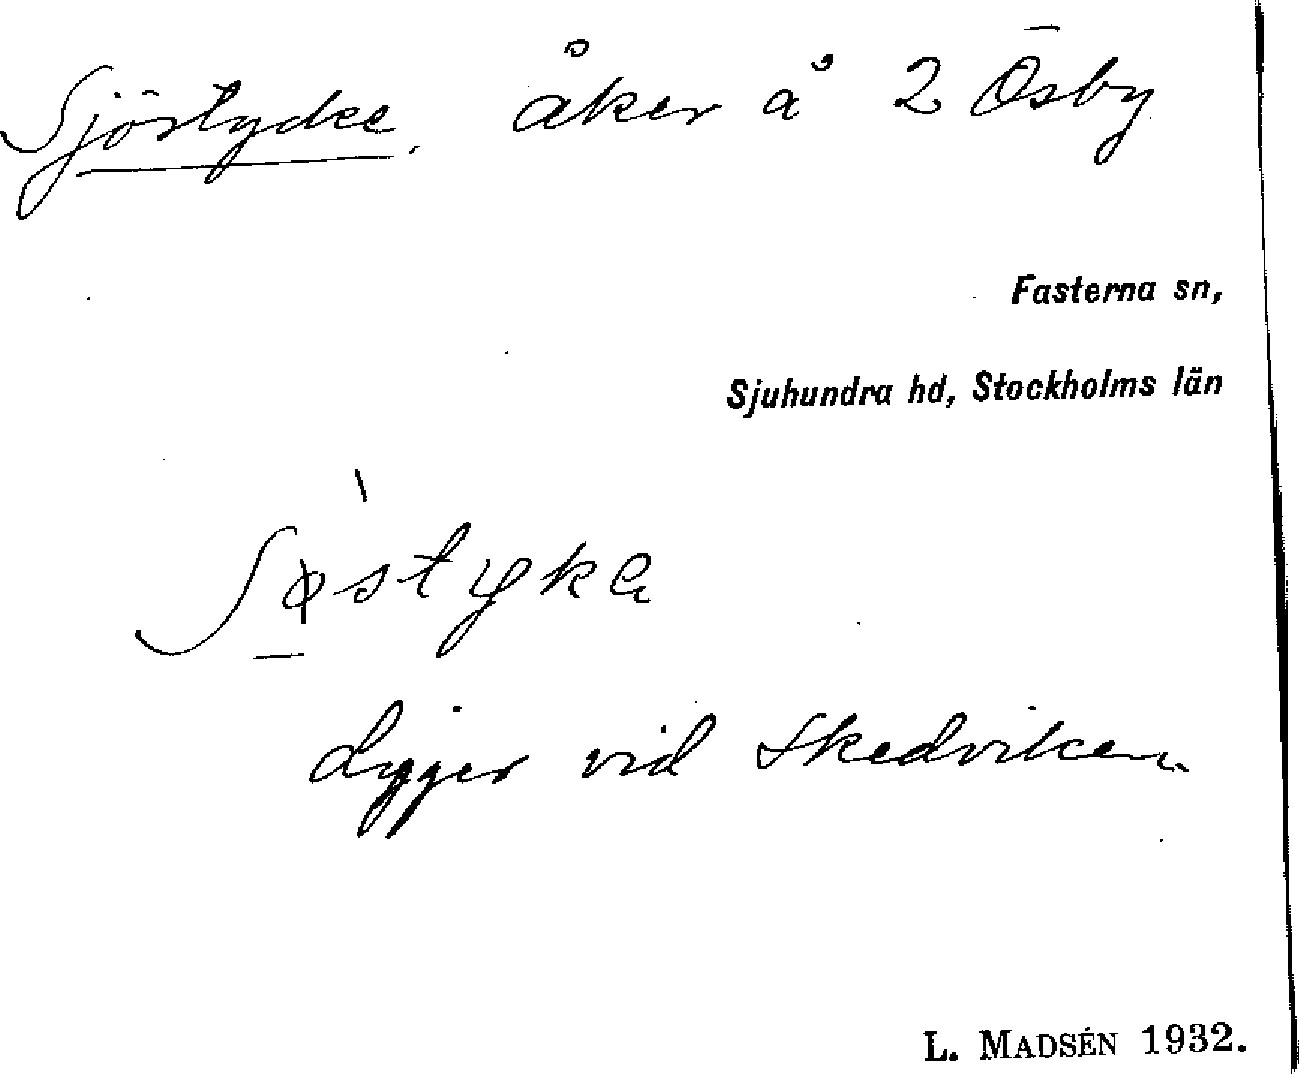 Sjöstycke, åker å 2 Ösby
Fasterna sn,
Sjuhundra hd, Stockholms län
Ligger vid Skedviken
L. MADSÉN 1932.